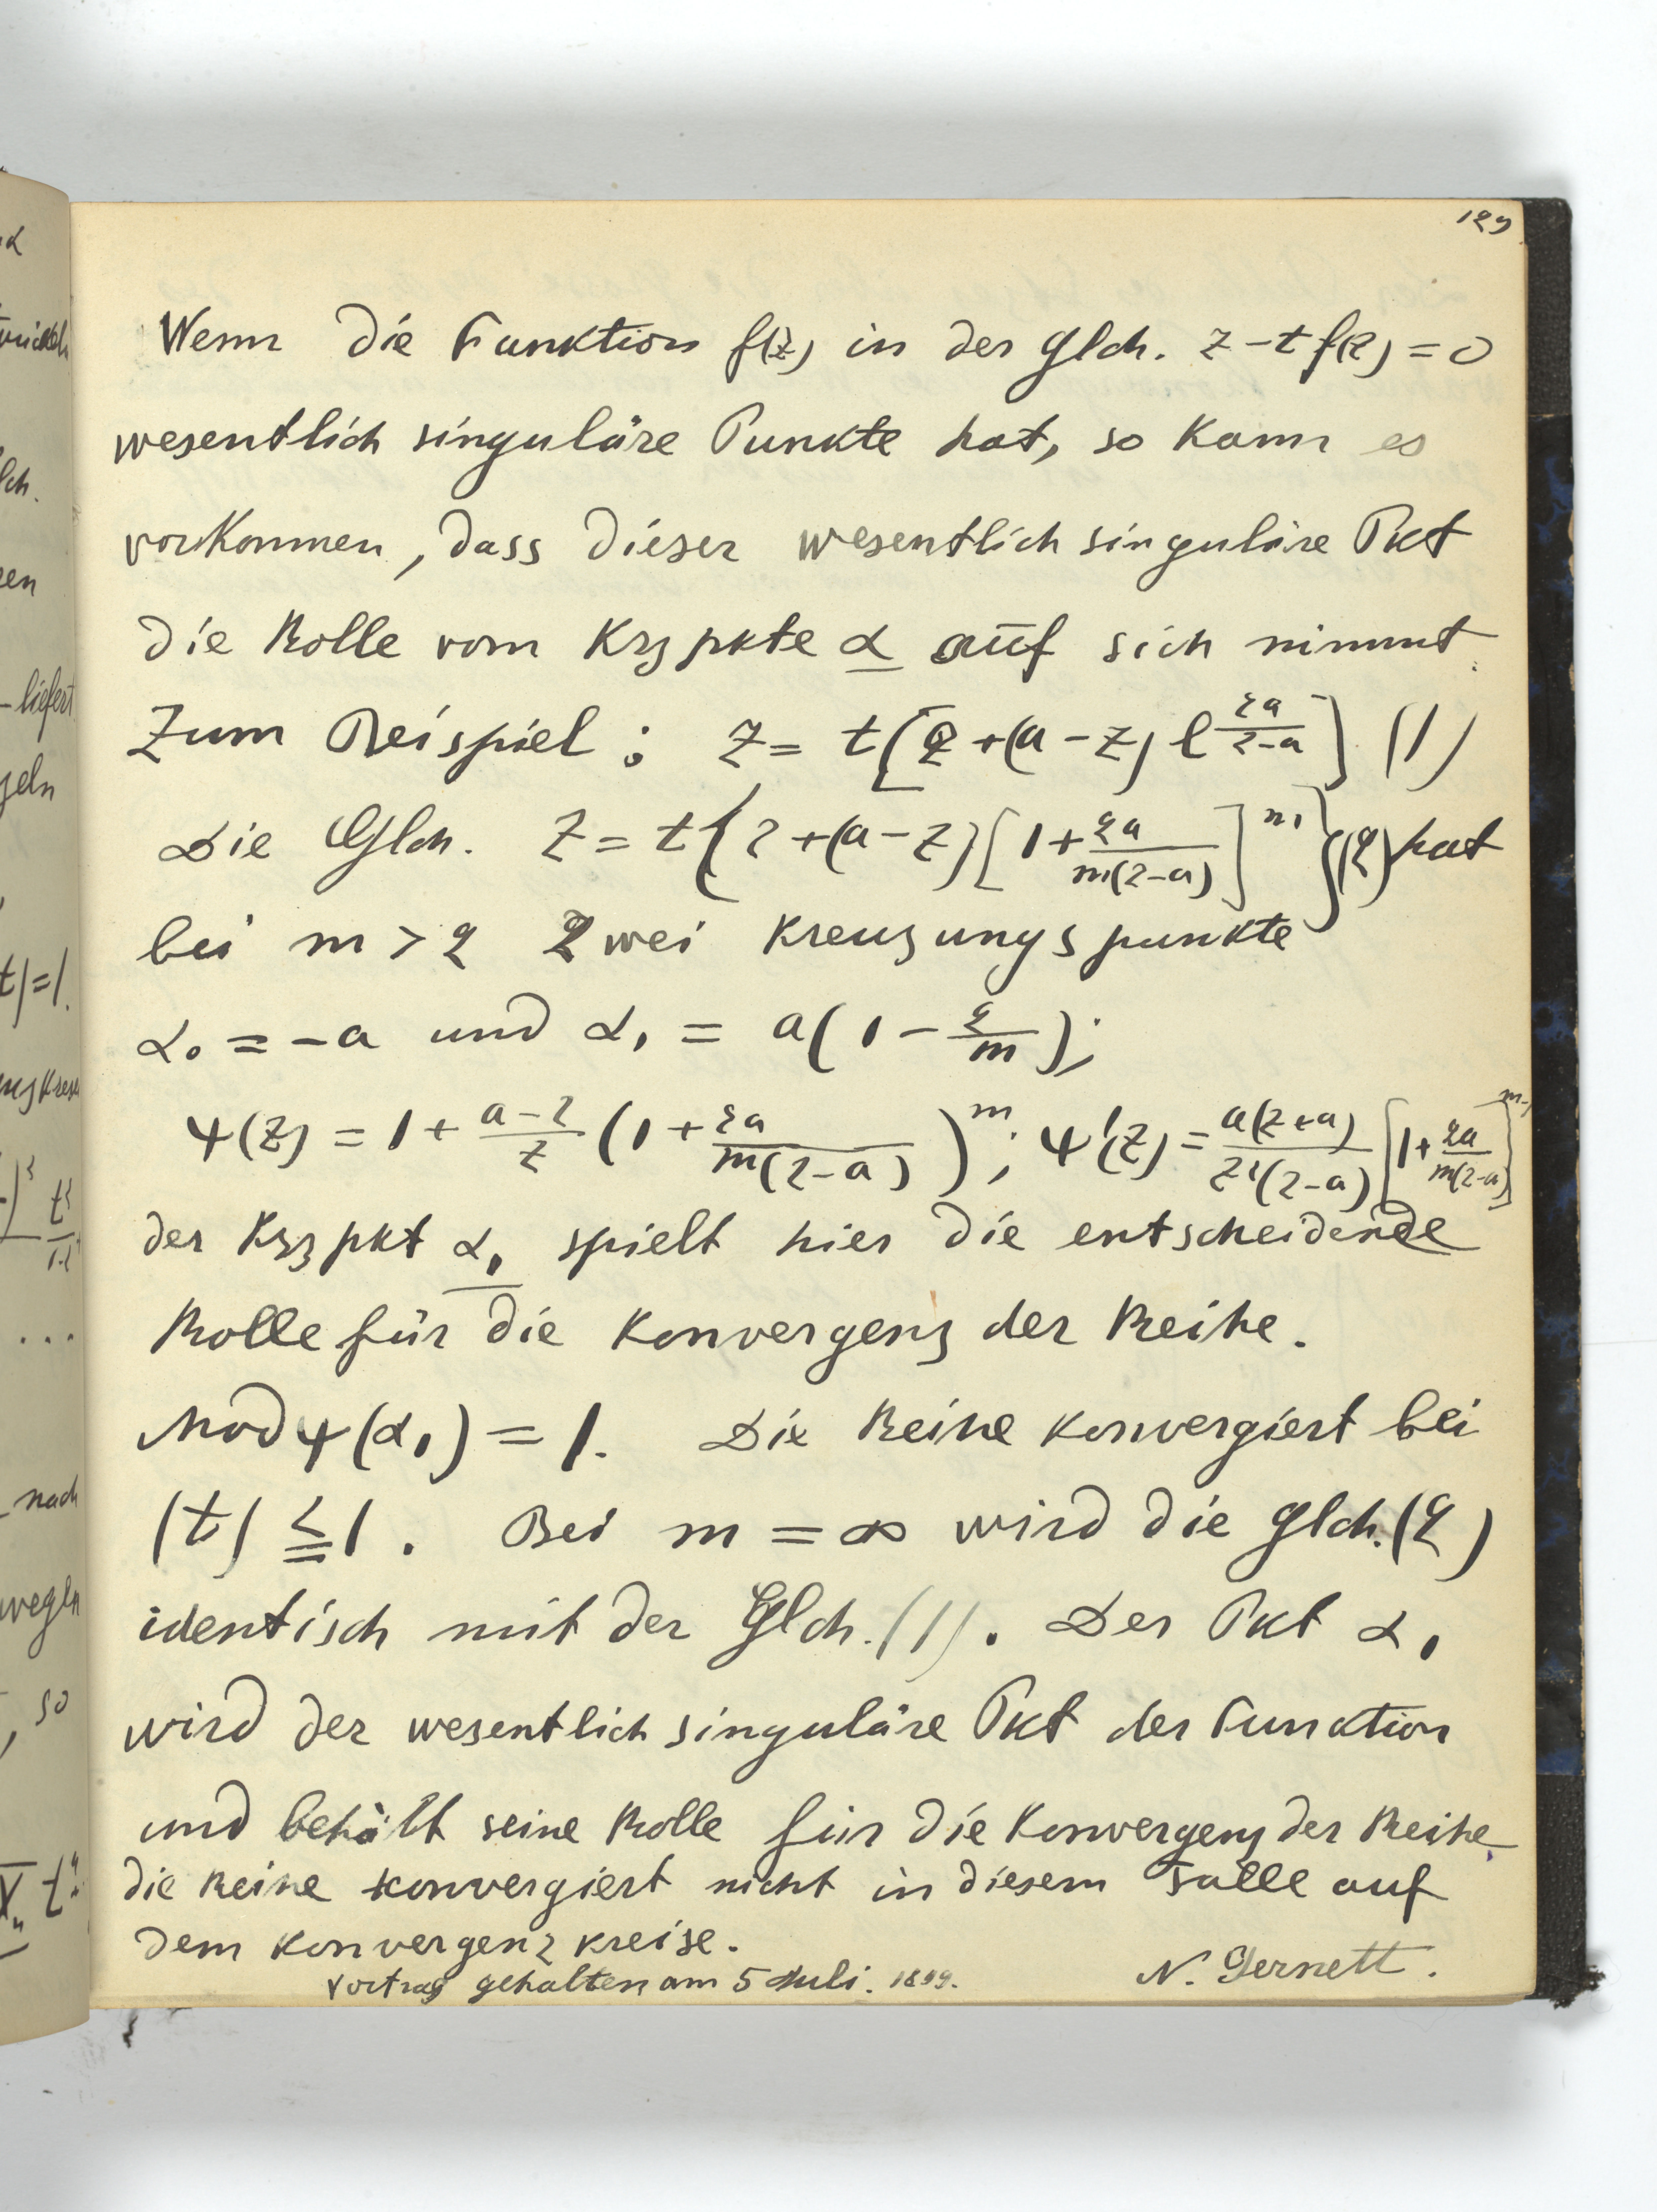 129
Wenn die Funktion f(z) in der Glch. z - t f(z) = 0
wesentlich singuläre Punkte hat, so kann es
vorkommen, dass dieser wesentlich singuläre Pkt
die Rolle vom Krzpkte α auf sich nimmt.
Zum Beispiel : z = t[z + (a - z) e^{\frac{2a}{z-a}}] (1)
Die Glch. z = t{z + (a - z)[1 + \frac{2a}{m(z-a)}]^m}(2) hat
bei m > 2 zwei Kreuzungspunkte
α₀ = -a und α₁ = a(1 - \frac{2}{m});
ψ(z) = 1 + \frac{a-z}{z} (1 + \frac{2a}{m(z-a)})^m; ψ'(z) = \frac{a(z+a)}{z^2(z-a)} [1 + \frac{2a}{m(z-a)}]^{m-1}
der Krzpkt α₁ spielt hier die entscheidende
Rolle für die Konvergenz der Reihe.
Mod ψ(α₁) = 1. Die Reihe konvergiert bei
|t| ≦ 1. Bei m = ∞ wird die Glch. (2)
identisch mit der Glch. (1). Der Pkt α₁
wird der wesentlich singuläre Pkt der Funktion
und behält seine Rolle für die Konvergenz der Reihe.
die Reihe konvergiert nicht in diesem Falle auf
dem Konvergenzkreise.
Vortrag gehalten am 5 Juli. 1899. N. Gernett.